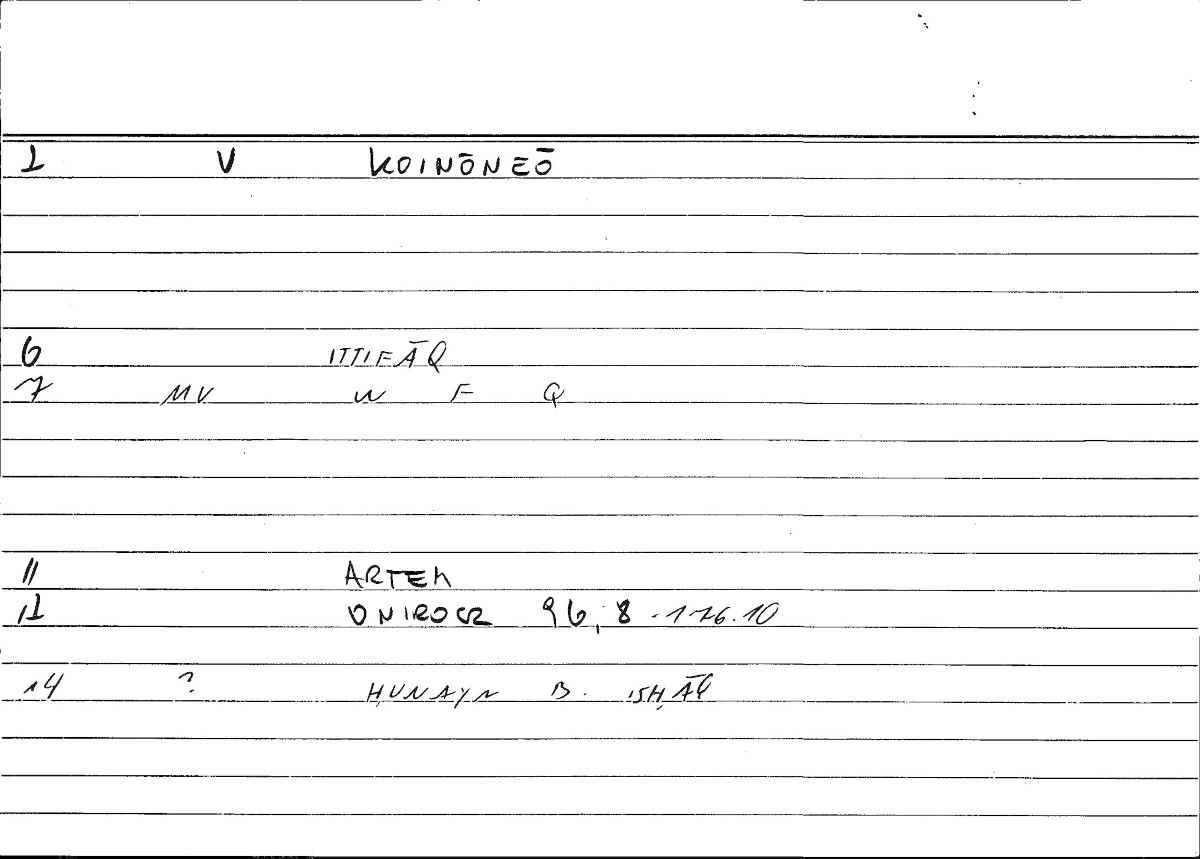 1 V KOINŌNEŌ
6 ITTIFĀQ
7 MV W F Q
11 ARTEM
12 ONIROCR 96,8 - 176.10
14 ? ḤUNAYN B. ISḤĀQ